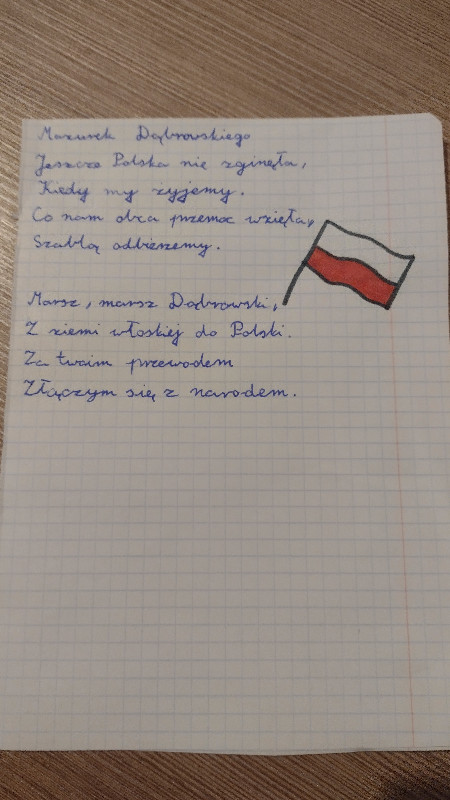 Mazurek Dąbrowskiego
Jeszcze Polska nie zginęła,
Kiedy my żyjemy.
Co nam obca przemoc wzięła,
Szablą odbierzemy.
Marsz, marsz Dąbrowski,
Z ziemi włoskiej do Polski.
Za twoim przewodem
Złączym się z narodem.